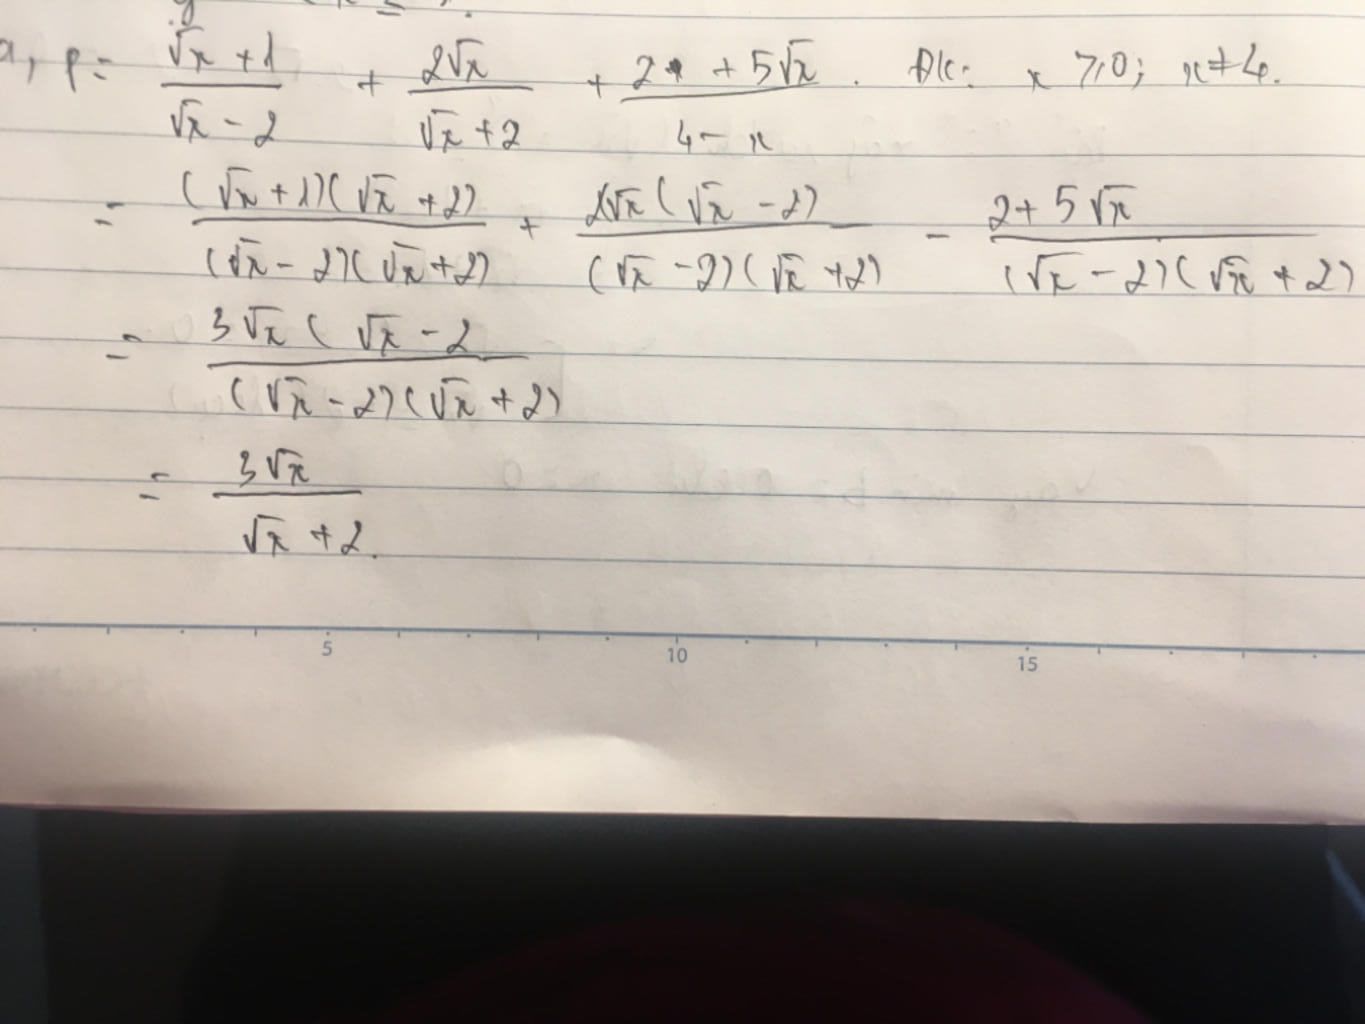 a, P = (√x + 1)/(√x - 2) + 2√x/(√x + 2) + (2 + 5√x)/(4 - x). ĐK: x ≥ 0; x ≠ 4.
= (√x + 1)(√x + 2)/(√x - 2)(√x + 2) + 2√x(√x - 2)/(√x - 2)(√x + 2) - 2 + 5√x/(√x - 2)(√x + 2)
= 3√x(√x - 2/(√x - 2)(√x + 2)
= 3√x/√x + 2.
5 10 15